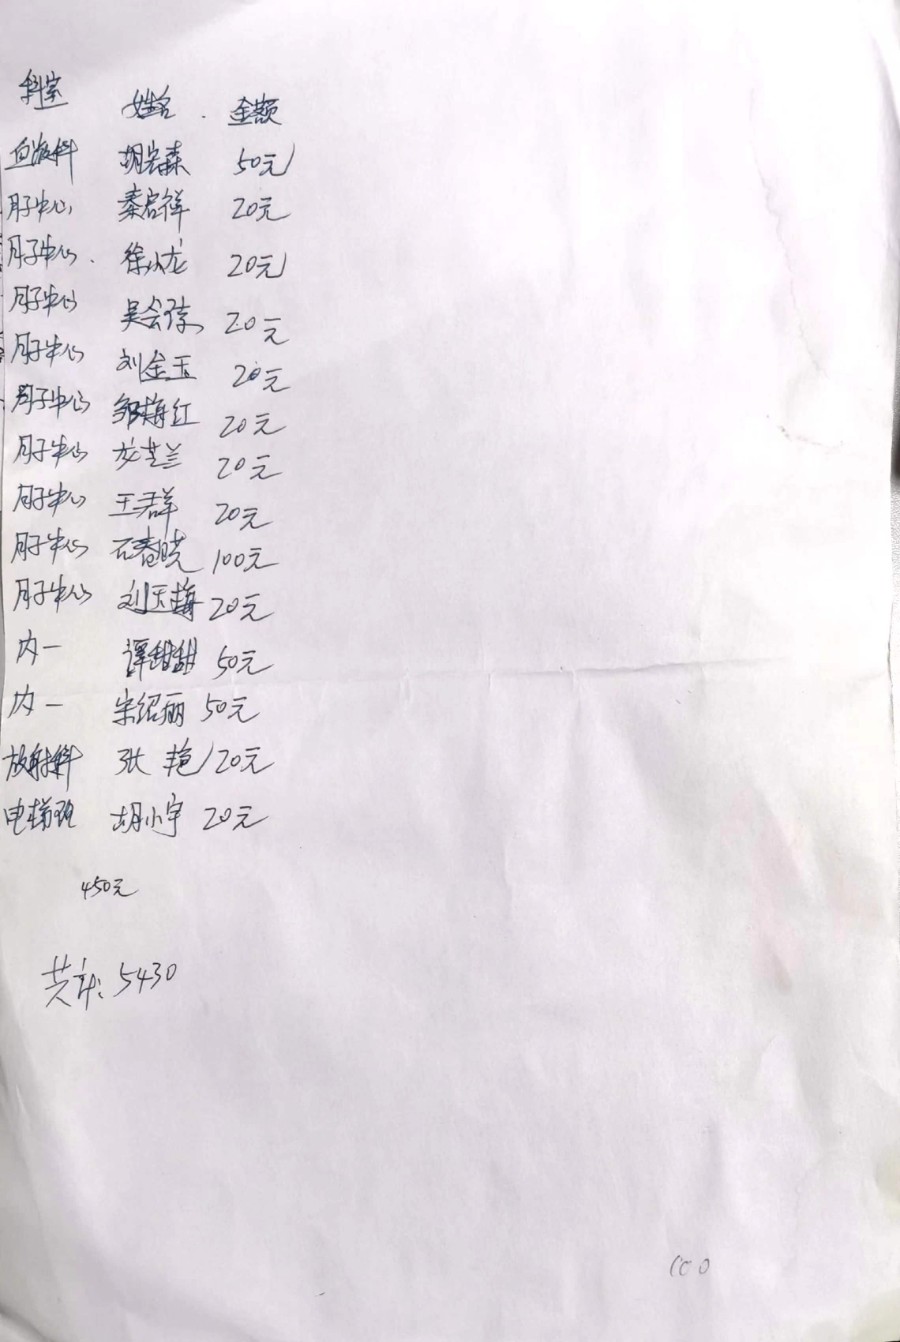 科室 姓名 金额
血液科 胡岩森 50元
月子中心 秦启祥 20元
月子中心 徐小龙 20元
月子中心 吴会 20元
月子中心 刘金玉 20元
月子中心 邹梅红 20元
月子中心 龙芝兰 20元
月子中心 王君群 20元
月子中心 石春晓 100元
月子中心 刘玉梅 20元
内一 谭甜甜 50元
内一 宋绍丽 50元
放射科 张艳 20元
电梯班 胡小宇 20元
450元
共计: 5430
100